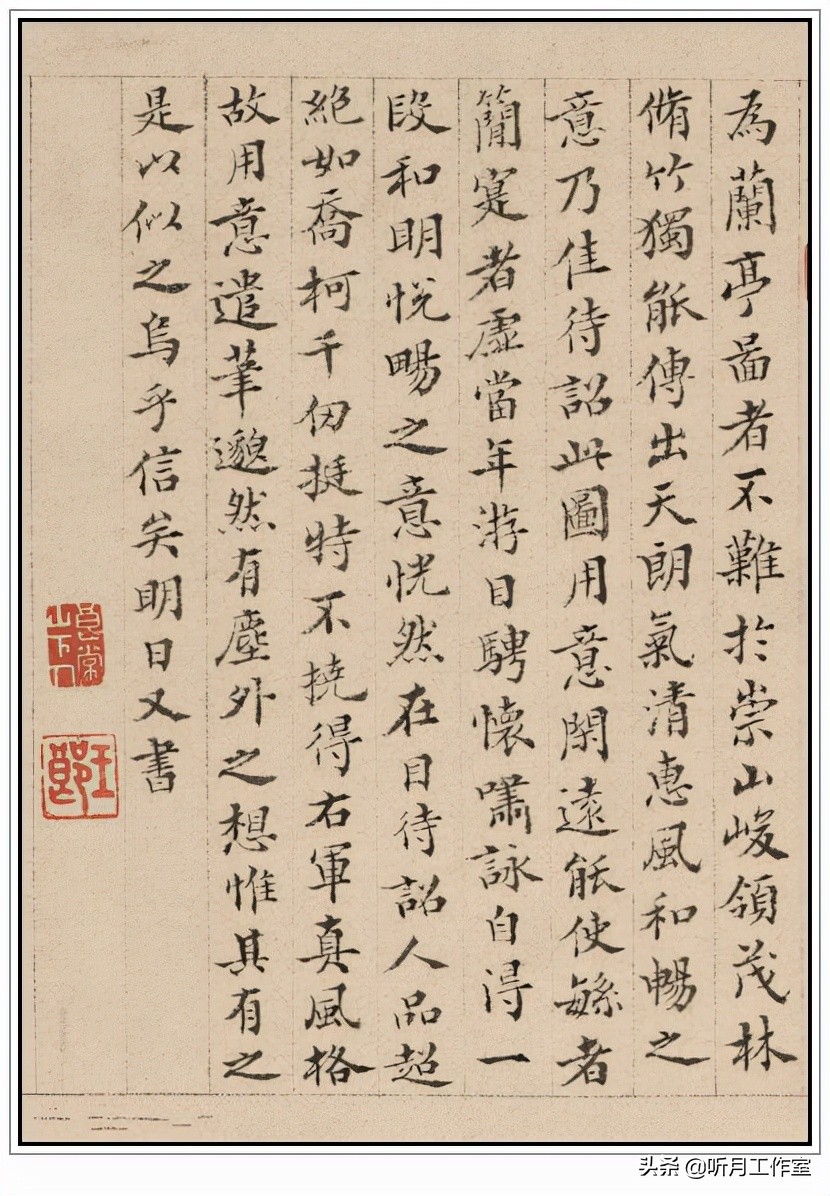 為蘭亭啚者不難於崇山峻領茂林
脩竹獨能傳出天朗氣清惠風和暢之
意乃佳待詔此圖用意閑遠能使緐者
簡寔者虛當年游目騁懷嘯詠自得一
段和明悅暢之意恍然在目待詔人品超
絕如喬柯千仞挺特不撓得右軍真風格
故用意遣筆邈然有塵外之想惟其有之
是以似之烏乎信矣明日又書
头条 @听月工作室